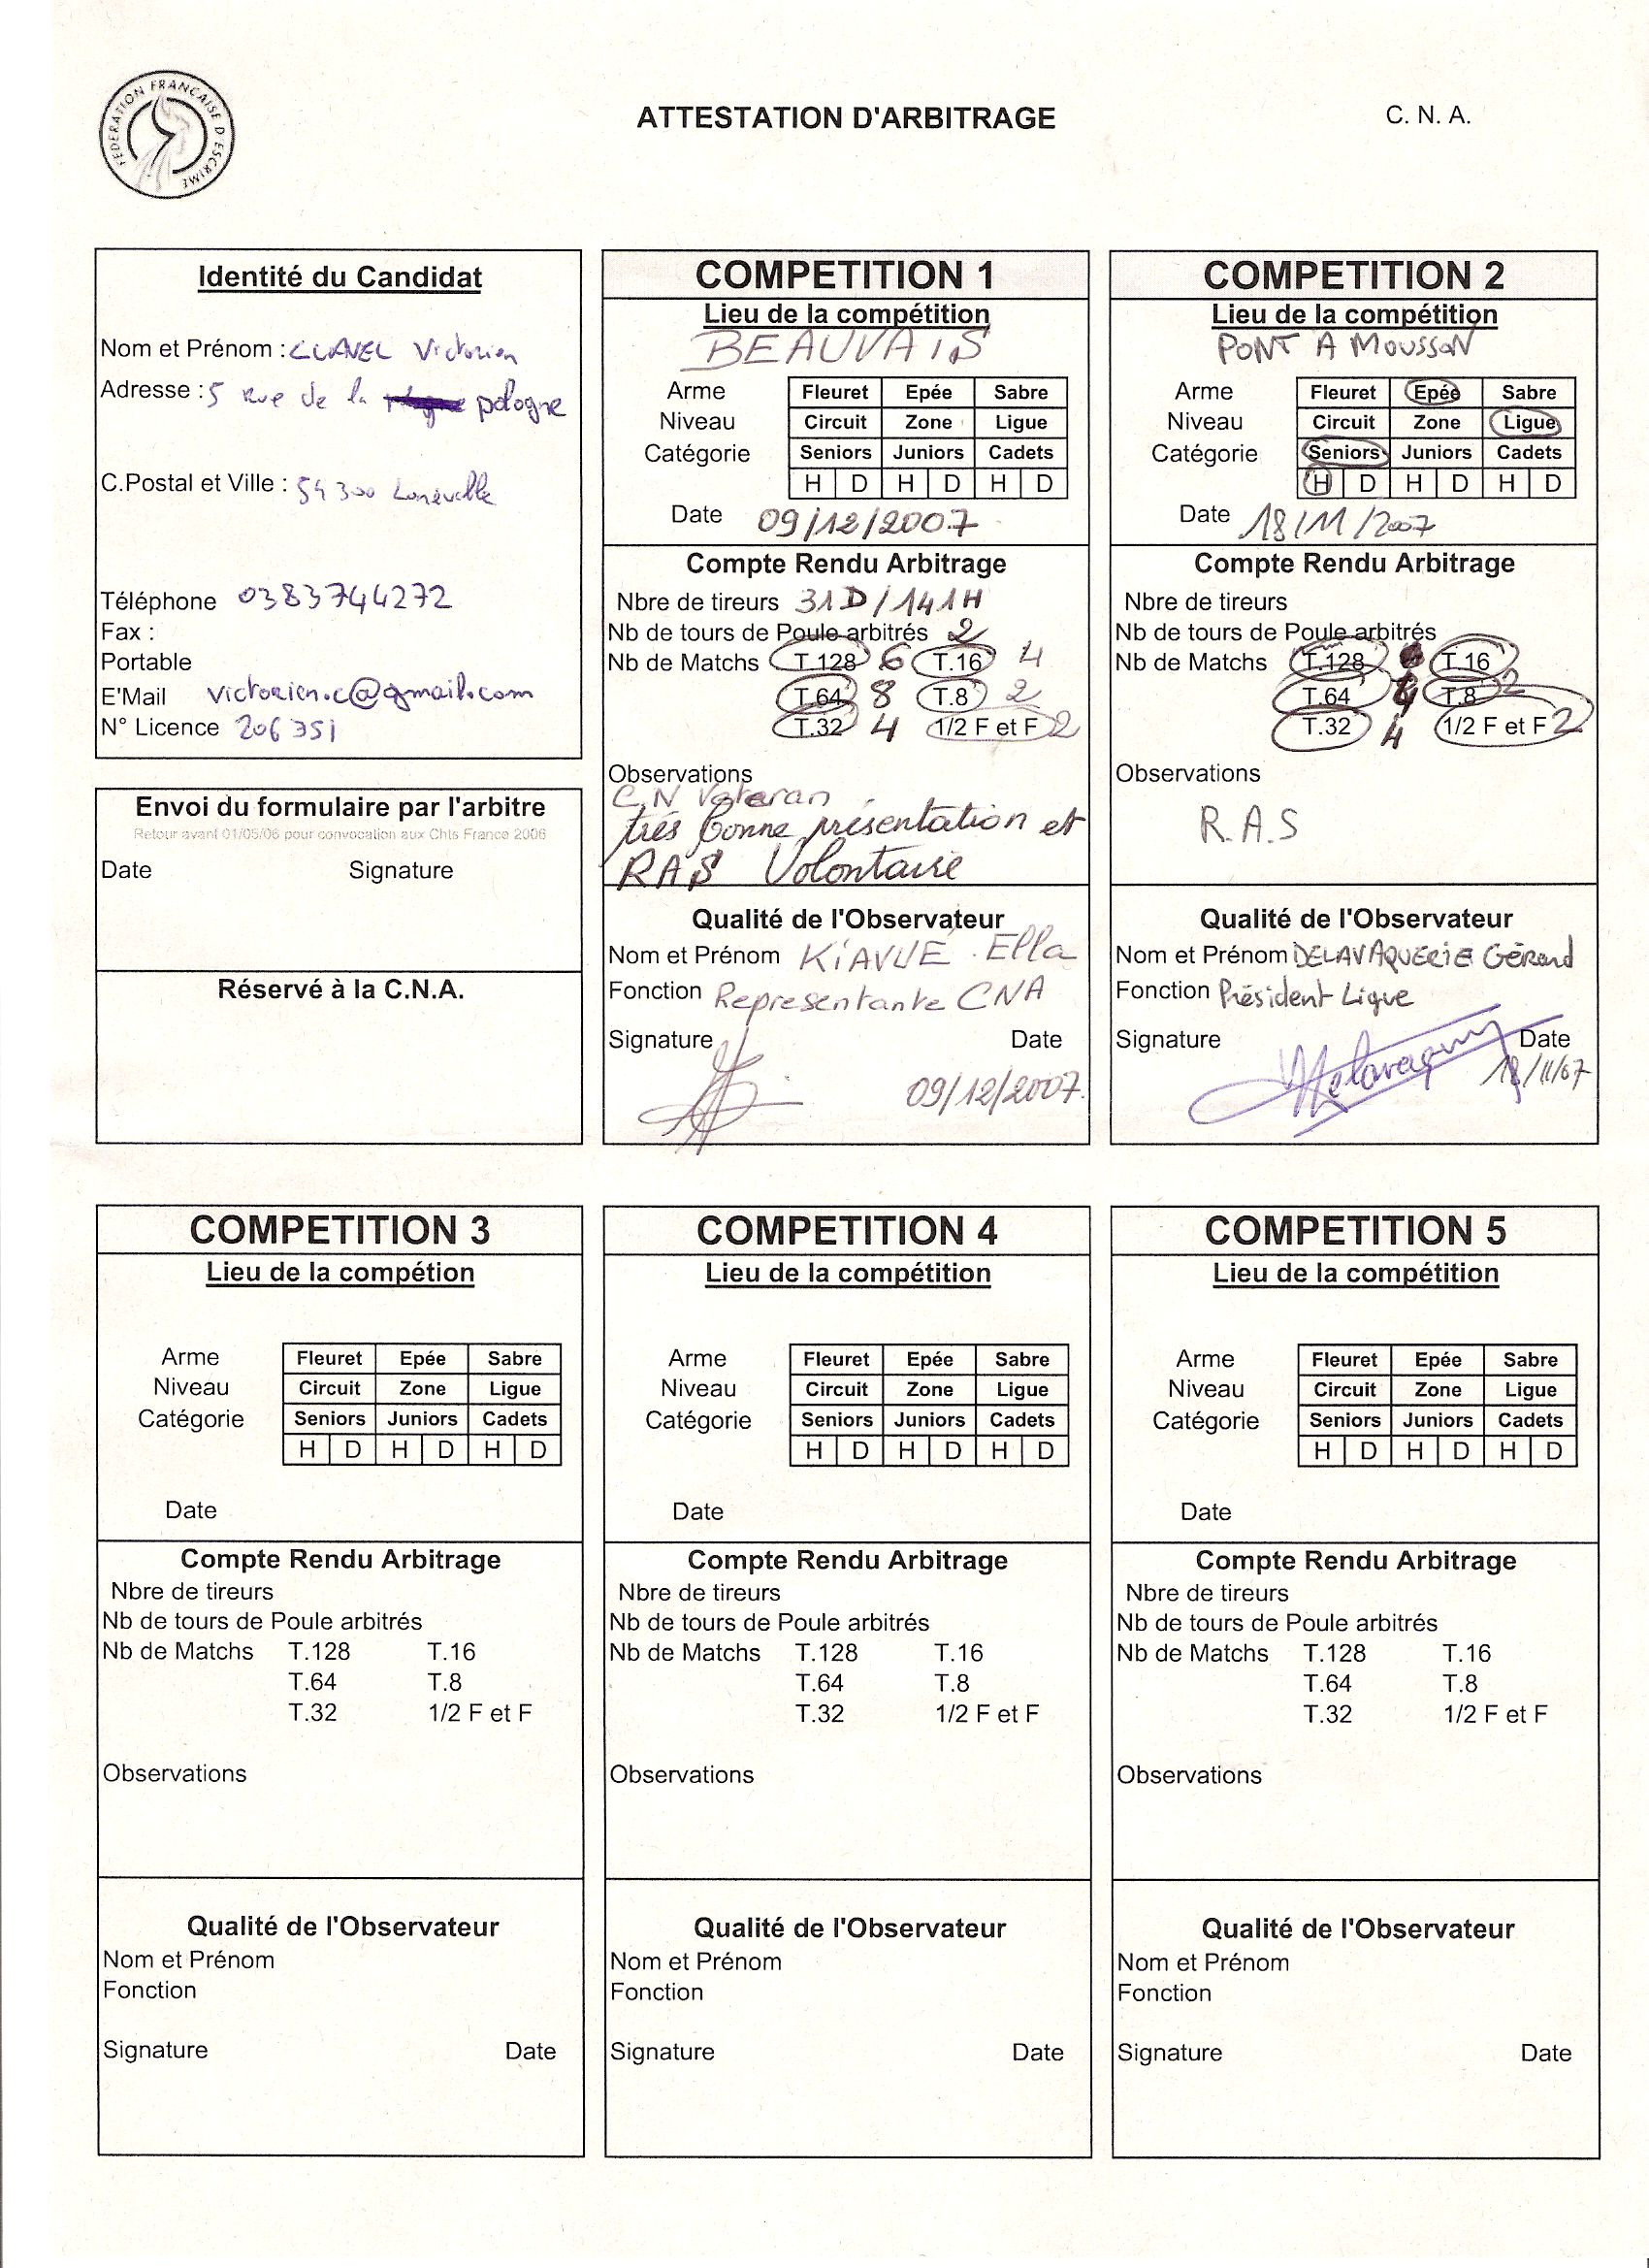 FEDERATION FRANCAISE D'ESCRIME
ATTESTATION D'ARBITRAGE
C. N. A.
Identité du Candidat
Nom et Prénom : CLAVEL Victorien
Adresse : 5 rue de la pologne
C.Postal et Ville : 54300 Lunéville
Téléphone 0383744272
Fax :
Portable
E'Mail victorien.c@gmail.com
N° Licence 206351
Envoi du formulaire par l'arbitre
Retour avant 01/05/06 pour convocation aux Chts France 2006
Date Signature
Réservé à la C.N.A.
COMPETITION 1
Lieu de la compétition
BEAUVAIS
Arme Fleuret Epée Sabre
Niveau Circuit Zone Ligue
Catégorie Seniors Juniors Cadets
H D H D H D
Date 09/12/2007
Compte Rendu Arbitrage
Nbre de tireurs 31D/141H
Nb de tours de Poule arbitrés 2
Nb de Matchs T.128 6 T.16 4
T.64 8 T.8 2
T.32 4 1/2 F et F 2
Observations
C.N Vétéran
très bonne présentation et
RAS Volontaire
Qualité de l'Observateur
Nom et Prénom KIAVUÉ Ella
Fonction Représentante CNA
Signature Date
09/12/2007.
COMPETITION 2
Lieu de la compétition
PONT A MOUSSON
Arme Fleuret Epée Sabre
Niveau Circuit Zone Ligue
Catégorie Seniors Juniors Cadets
H D H D H D
Date 18/11/2007
Compte Rendu Arbitrage
Nbre de tireurs
Nb de tours de Poule arbitrés
Nb de Matchs T.128 T.16
T.64 T.8 2
T.32 4 1/2 F et F 2
Observations
R.A.S
Qualité de l'Observateur
Nom et Prénom DELAVAQUERIE Gérard
Fonction Président Ligue
Signature Date
18/11/07
COMPETITION 3
Lieu de la compétion
Arme Fleuret Epée Sabre
Niveau Circuit Zone Ligue
Catégorie Seniors Juniors Cadets
H D H D H D
Date
Compte Rendu Arbitrage
Nbre de tireurs
Nb de tours de Poule arbitrés
Nb de Matchs T.128 T.16
T.64 T.8
T.32 1/2 F et F
Observations
Qualité de l'Observateur
Nom et Prénom
Fonction
Signature Date
COMPETITION 4
Lieu de la compétition
Arme Fleuret Epée Sabre
Niveau Circuit Zone Ligue
Catégorie Seniors Juniors Cadets
H D H D H D
Date
Compte Rendu Arbitrage
Nbre de tireurs
Nb de tours de Poule arbitrés
Nb de Matchs T.128 T.16
T.64 T.8
T.32 1/2 F et F
Observations
Qualité de l'Observateur
Nom et Prénom
Fonction
Signature Date
COMPETITION 5
Lieu de la compétition
Arme Fleuret Epée Sabre
Niveau Circuit Zone Ligue
Catégorie Seniors Juniors Cadets
H D H D H D
Date
Compte Rendu Arbitrage
Nbre de tireurs
Nb de tours de Poule arbitrés
Nb de Matchs T.128 T.16
T.64 T.8
T.32 1/2 F et F
Observations
Qualité de l'Observateur
Nom et Prénom
Fonction
Signature Date